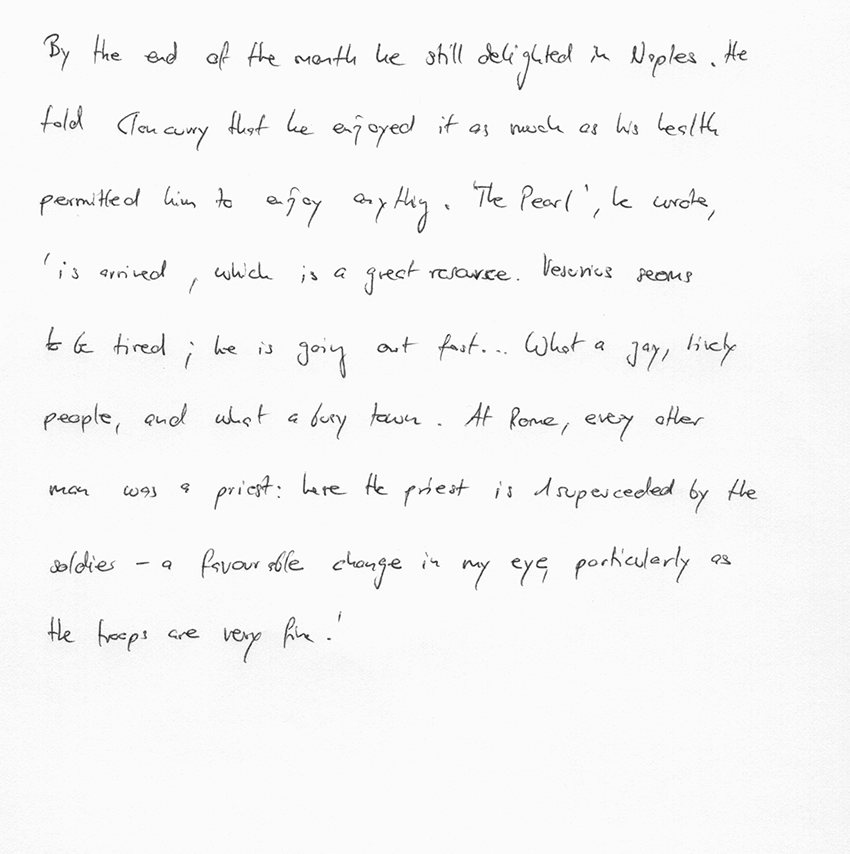 By the end of the month he still delighted in Naples. He
told Cloncurry that he enjoyed it as much as his health
permitted him to enjoy anything. 'The Pearl', he wrote,
'is arrived, which is a great resource. Vesuvius seems
to be tired; he is going out fast... What a gay, lively
people, and what a busy town. At Rome, every other
man was a priest: here the priest is superceded by the
soldies - a favourable change in my eye, particularly as
the troops are very fine.'